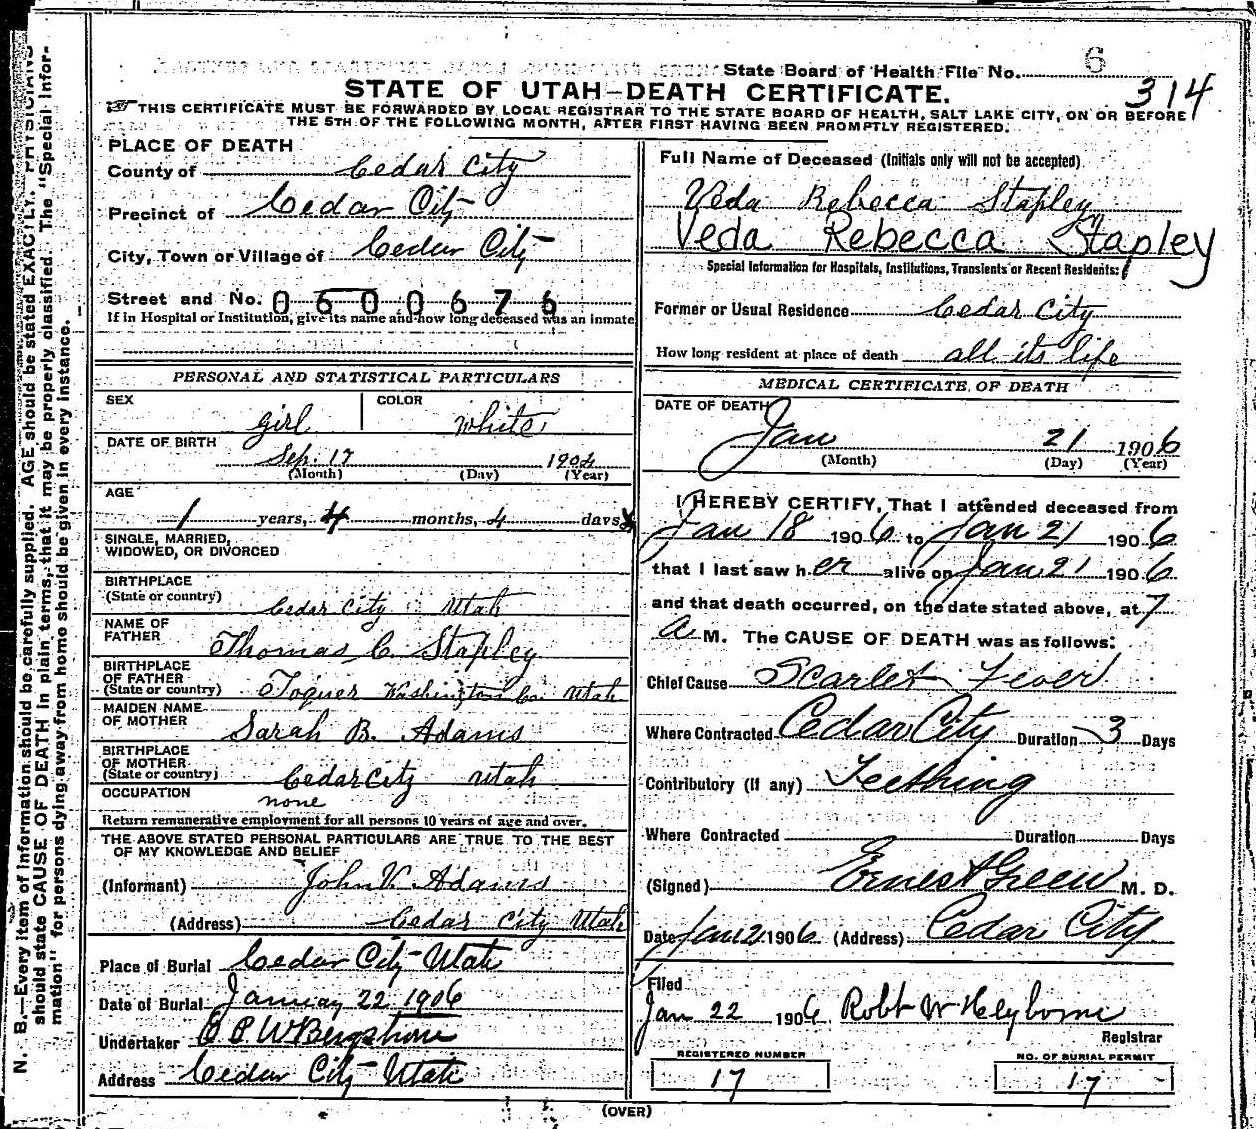 State Board of Health File No. 6
314
STATE OF UTAH—DEATH CERTIFICATE.
THIS CERTIFICATE MUST BE FORWARDED BY LOCAL REGISTRAR TO THE STATE BOARD OF HEALTH, SALT LAKE CITY, ON OR BEFORE
THE 5TH OF THE FOLLOWING MONTH, AFTER FIRST HAVING BEEN PROMPTLY REGISTERED.
PLACE OF DEATH
County of Cedar City
Precinct of Cedar City
City, Town or Village of Cedar City
Street and No. 0600676
If in Hospital or Institution, give its name and how long deceased was an inmate
PERSONAL AND STATISTICAL PARTICULARS
SEX girl COLOR white
DATE OF BIRTH
Sep. 17 1904
(Month) (Day) (Year)
AGE
1 years, 4 months, 4 days
SINGLE, MARRIED,
WIDOWED, OR DIVORCED
BIRTHPLACE
(State or country) Cedar City Utah
NAME OF
FATHER Thomas C. Stapley
BIRTHPLACE
OF FATHER
(State or country) Toquer Washington Co. Utah
MAIDEN NAME
OF MOTHER Sarah B. Adams
BIRTHPLACE
OF MOTHER
(State or country) Cedar City Utah
OCCUPATION none
Return remunerative employment for all persons 10 years of age and over.
THE ABOVE STATED PERSONAL PARTICULARS ARE TRUE TO THE BEST
OF MY KNOWLEDGE AND BELIEF
(Informant) John V. Adams
(Address) Cedar City Utah
Place of Burial Cedar City Utah
Date of Burial January 22 1906
Undertaker
Address Cedar City Utah
Full Name of Deceased (Initials only will not be accepted)
Veda Rebecca Stapley
Veda Rebecca Stapley
Special Information for Hospitals, Institutions, Transients or Recent Residents:
Former or Usual Residence Cedar City
How long resident at place of death all its life
MEDICAL CERTIFICATE OF DEATH
DATE OF DEATH
Jan 21 1906
(Month) (Day) (Year)
I HEREBY CERTIFY, That I attended deceased from
Jan 18 1906. to Jan 21 1906.
that I last saw her alive on Jan 21 1906.
and that death occurred, on the date stated above, at 7
a M. The CAUSE OF DEATH was as follows:
Chief Cause Scarlet Fever
Where Contracted Cedar City Duration 3 Days
Contributory (if any) Teething
Where Contracted Duration Days
(Signed) Ernest Green M. D.
Date Jan 2 1906. (Address) Cedar City
Filed
Jan 22 1906 Robt W Heyborne
Registrar
REGISTERED NUMBER
17
NO. OF BURIAL PERMIT
17
(OVER)
N. B.—Every item of information should be carefully supplied. AGE should be stated EXACTLY. PHYSICIANS
should state CAUSE OF DEATH in plain terms, that it may be properly classified. The "Special Infor-
mation" for persons dying away from home should be given in every instance.